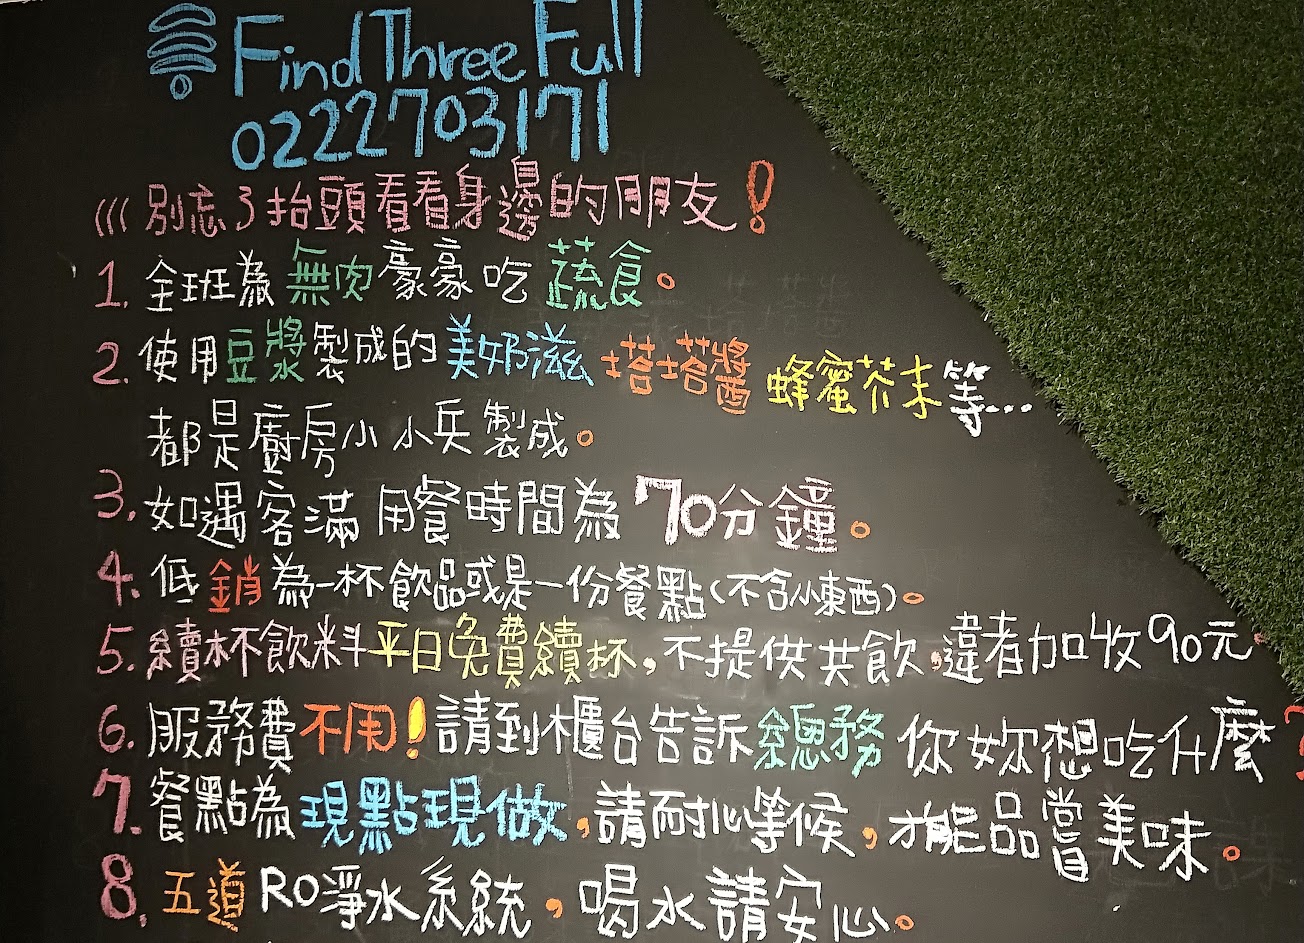 Find Three Full
0222703171
別忘了抬頭看看身邊的朋友!
1. 全班為無肉豪豪吃蔬食。
2. 使用豆漿製成的美奶滋 塔塔醬 蜂蜜芥末等...
都是廚房小小兵製成。
3. 如遇客滿 用餐時間為70分鐘。
4. 低銷為一杯飲品或是一份餐點(不含小東西)。
5. 續杯飲料平日免費續杯,不提供共飲,違者加收90元。
6. 服務費不用!請到櫃台告訴總務 你妳想吃什麼?
7. 餐點為現點現做,請耐心等候,才能品嘗美味。
8. 五道RO淨水系統,喝水請安心。